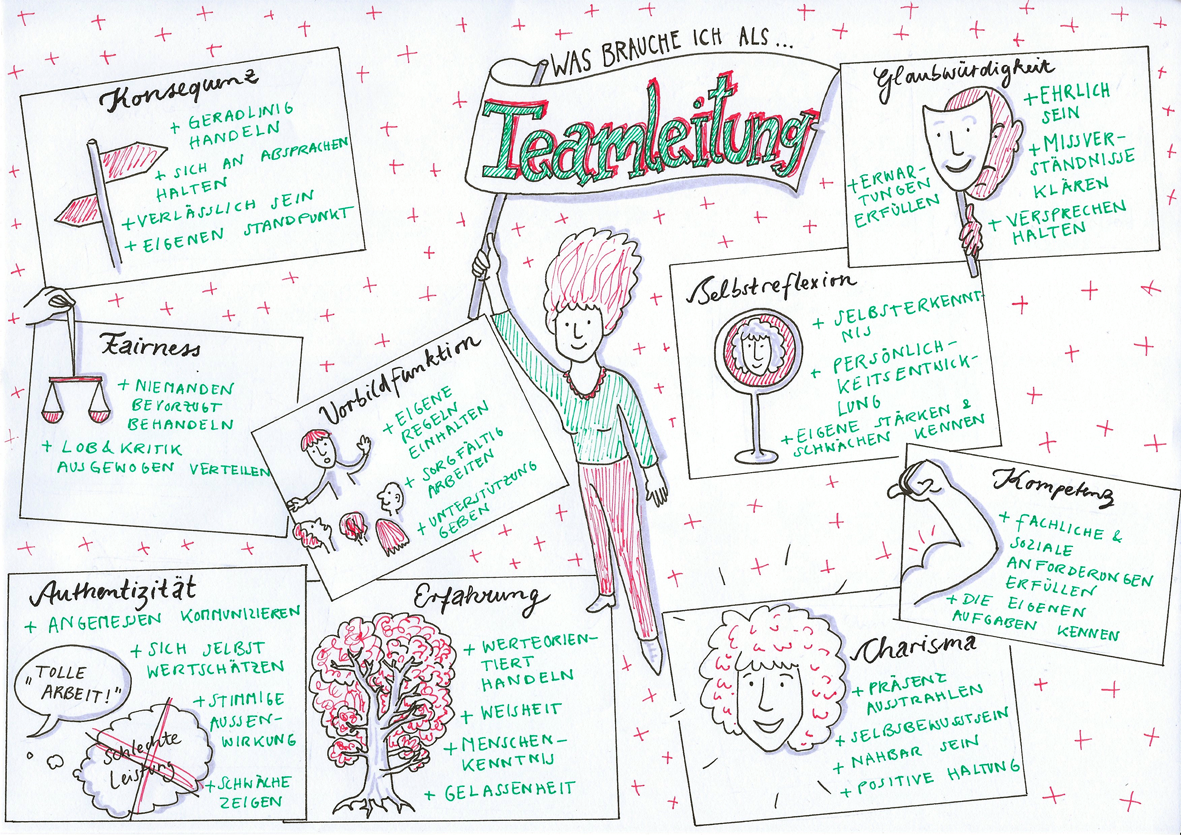 WAS BRAUCHE ICH ALS...
Teamleitung
Konsequenz
+ GERADLINIG
HANDELN
+ SICH AN ABSPRACHEN
HALTEN
+ VERLÄSSLICH SEIN
+ EIGENEN STANDPUNKT
Glaubwürdigkeit
+ EHRLICH
SEIN
+ MISSVER-
STÄNDNISSE
KLÄREN
+ VERSPRECHEN
HALTEN
+ ERWAR-
TUNGEN
ERFÜLLEN
Fairness
+ NIEMANDEN
BEVORZUGT
BEHANDELN
+ LOB & KRITIK
AUSGEWOGEN VERTEILEN
Vorbildfunktion
+ EIGENE
REGELN
EINHALTEN
+ SORGFÄLTIG
ARBEITEN
+ UNTERSTÜTZUNG
GEBEN
Selbstreflexion
+ SELBSTERKENNT-
NIS
+ PERSÖNLICH-
KEITSENTWICK-
LUNG
+ EIGENE STÄRKEN &
SCHWÄCHEN KENNEN
Kompetenz
+ FACHLICHE &
SOZIALE
ANFORDERUNGEN
ERFÜLLEN
+ DIE EIGENEN
AUFGABEN KENNEN
Authentizität
+ ANGEMESSEN KOMMUNIZIEREN
+ SICH SELBST
WERTSCHÄTZEN
+ STIMMIGE
AUSSEN-
WIRKUNG
+ SCHWÄCHE
ZEIGEN
"TOLLE
ARBEIT!"
Schlechte
Leistung
Erfahrung
+ WERTEORIEN-
TIERT
HANDELN
+ WEISHEIT
+ MENSCHEN-
KENNTNIS
+ GELASSENHEIT
Charisma
+ PRÄSENZ
AUSSTRAHLEN
+ SELBSBEWUSSTSEIN
+ NAHBAR SEIN
+ POSITIVE HALTUNG